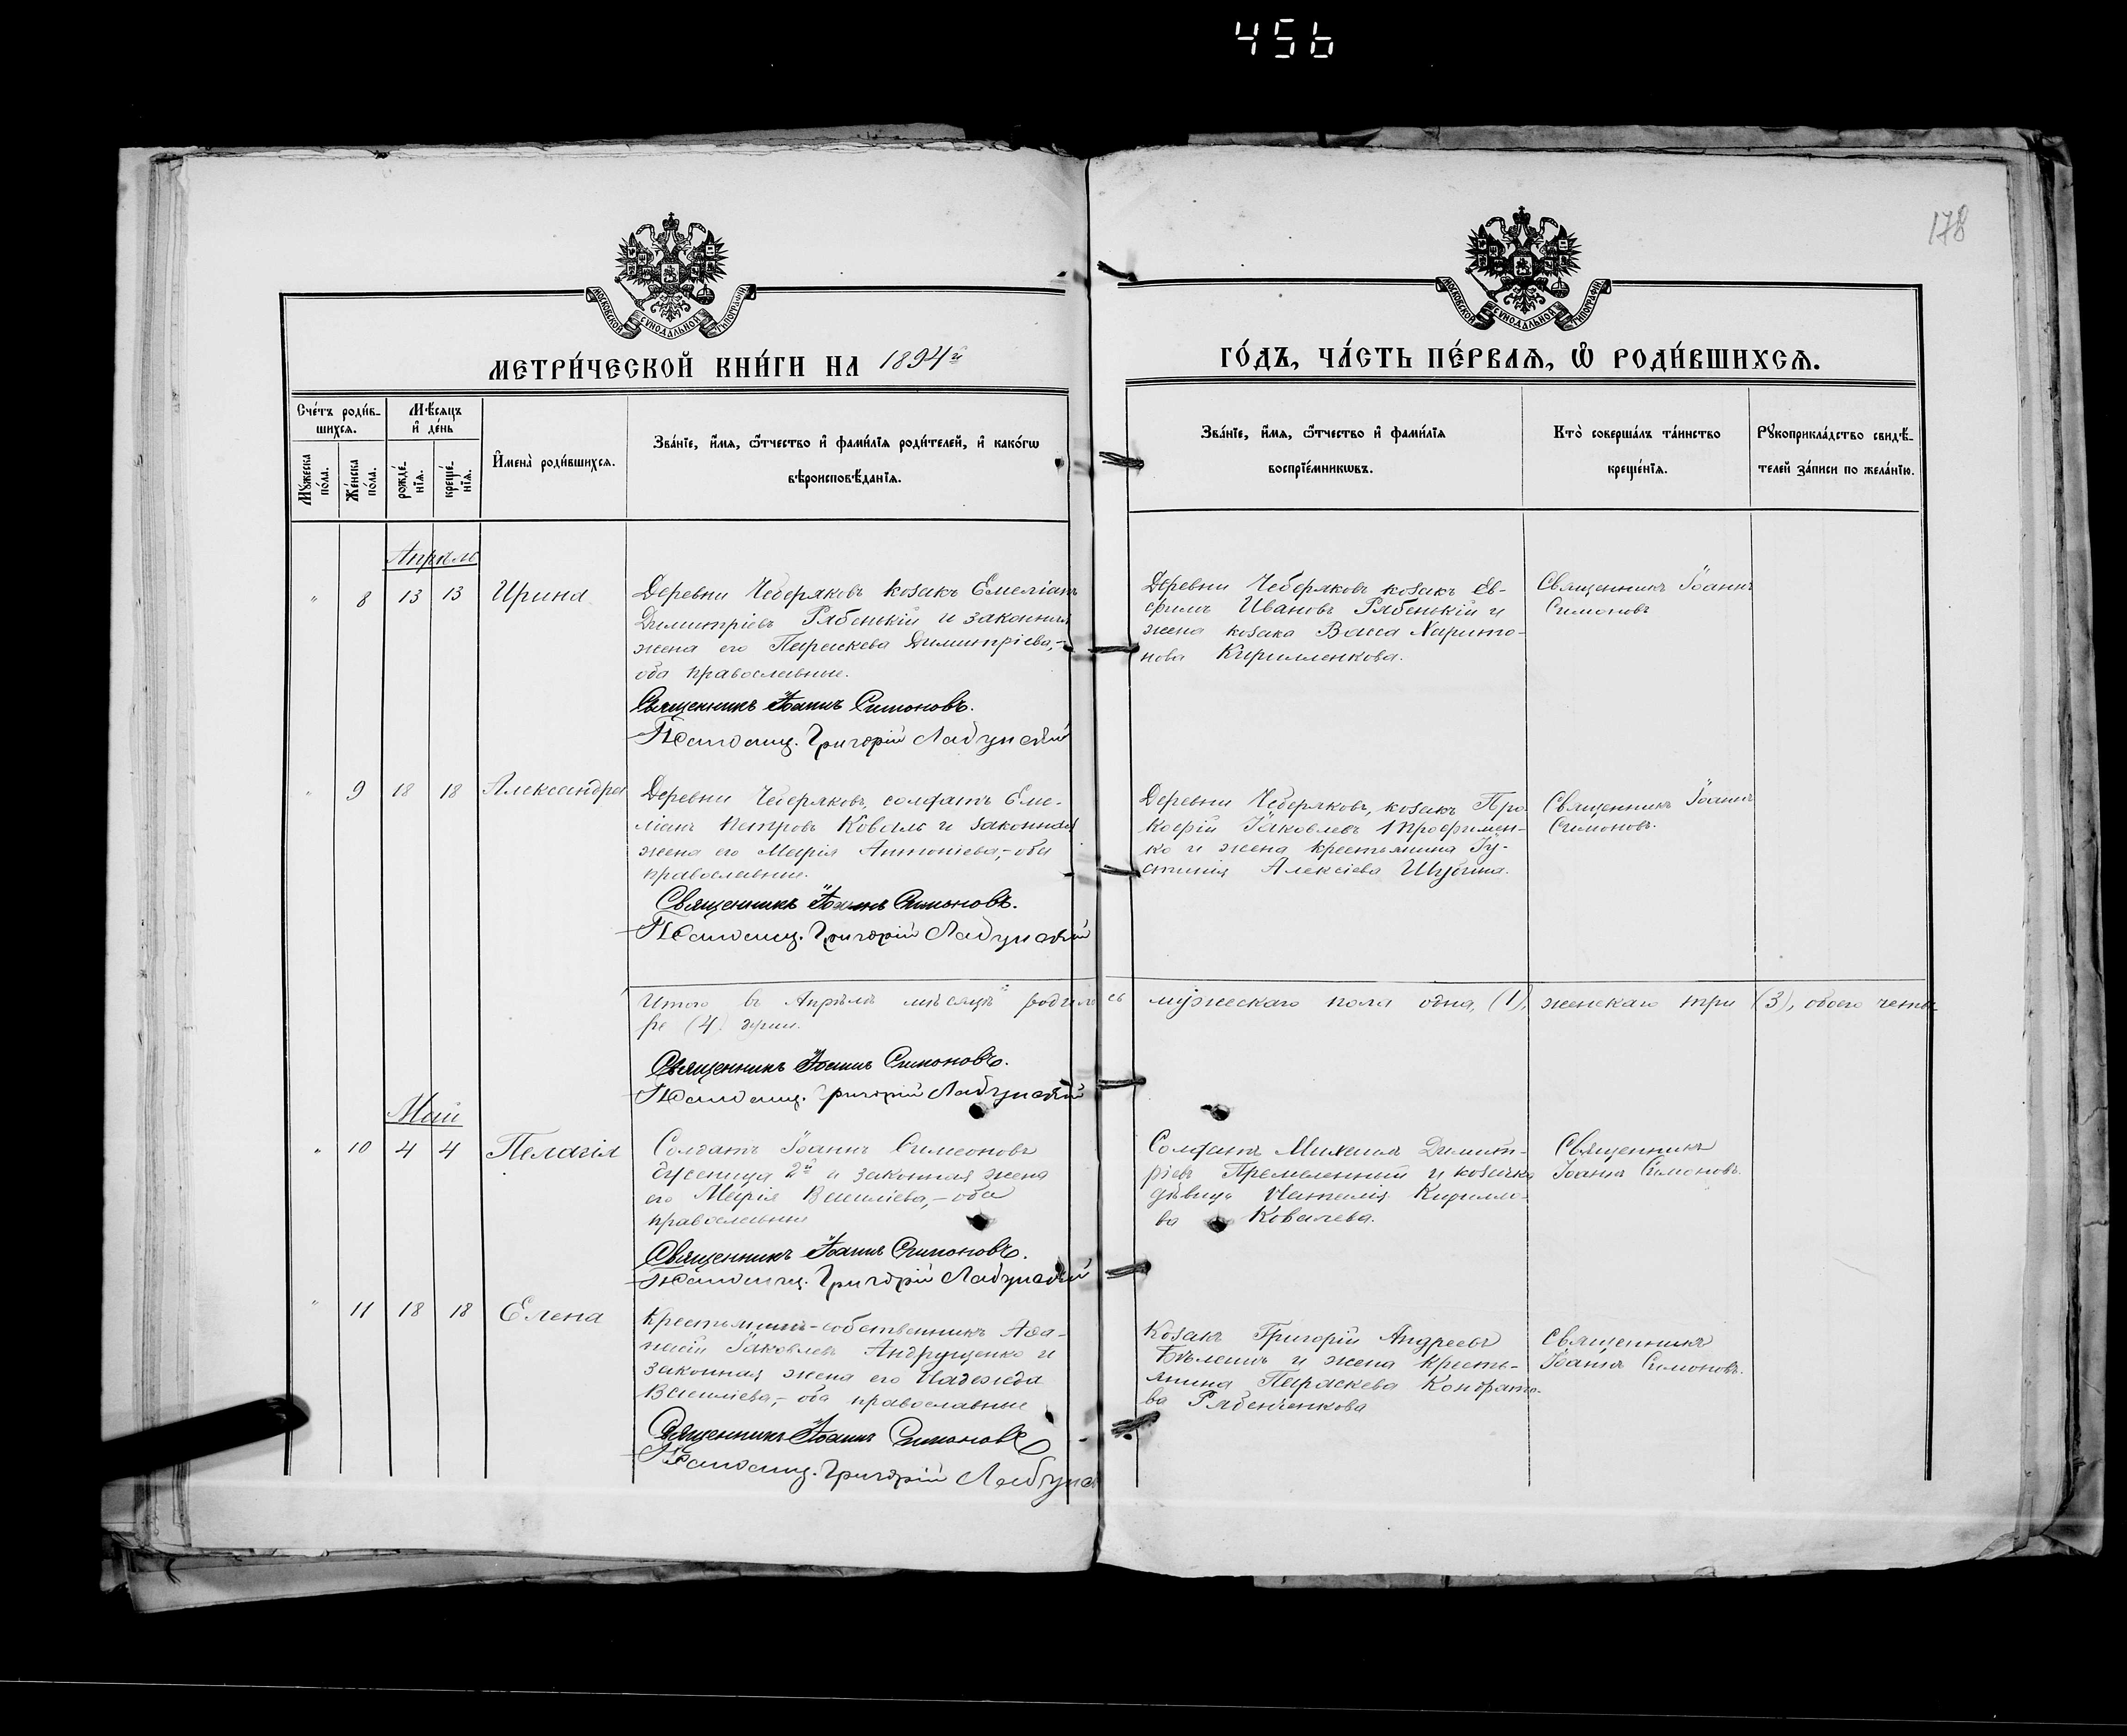 456
178
МОСКОВСКОЙ СѴНОДАЛЬНОЙ ТИПОГРАФІИ
МОСКОВСКОЙ СѴНОДАЛЬНОЙ ТИПОГРАФІИ
МЕТРИ́ЧЕСКОЙ КНИ́ГИ НА 1894й
ГО́ДЪ, ЧА́СТЬ ПЕ́РВАЯ, Ѡ РОДИ́ВШИХСЯ.
Сче́тъ роди́в-
шихся.
Мѣ́сяцъ
и҆ де́нь
Мꙋ́жеска
по́ла.
Же́нска
по́ла.
рожде́-
нїя.
креще́-
нїя.
И҆мена̀ роди́вшихся.
Зва́нїе, и҆́мя, ѻ҆́тчество и҆ фами́лїя роди́телей, и҆ како́гѡ
вѣроисповѣ́данїя.
Зва́нїе, и҆́мя, ѻ҆́тчество и҆ фами́лїя
воспрїе́мникѡвъ.
Кто̀ соверша́лъ та́инство
креще́нїя.
Рꙋкоприкла́дство свидѣ́-
телей за́писи по жела́нїю.
Апрѣль
" 8 13 13 Ирина
Деревни Чеберяковъ козакъ Емеліанъ
Димитріевъ Рябенькій и законная
жена его Параскева Димитріева,-
оба православные.
Священникъ Іоаннъ Симоновъ.
Псаломщ. Григорій
Деревни Чеберяковъ козакъ Ев-
фимъ Ивановъ Рябенькій и
жена козака Васса Харито-
нова Кириленкова.
Священникъ Іоаннъ
Симоновъ
" 9 18 18 Александра
Деревни Чеберяковъ, солдатъ Еме-
ліанъ Петровъ Коваль и законная
жена его Марія Антоніева,- оба
православные.
Священникъ Іоаннъ Симоновъ.
Псаломщ. Григорій
Деревни Чеберяковъ, козакъ Про-
кофій Іаковлевъ
ко и жена крестьянина Іу-
стинія Алексіева Шубина.
Священникъ Іоаннъ
Симоновъ.
Итого въ Апрѣлѣ мѣсяцѣ родилось мужескаго пола одна, (1), женскаго три (3), обоего четы-
ре (4) души.
Священникъ Іоаннъ Симоновъ.
Псаломщ. Григорій
Май
" 10 4 4 Пелагія
Солдатъ Іоаннъ Симеоновъ
2й и законная жена
его Марія Василіева,- оба
православные
Священникъ Іоаннъ Симоновъ.
Псаломщ. Григорій
Солдатъ Михаилъ Димит-
ріевъ и козачка
дѣвица Наталія Кирилло-
ва Ковалева.
Священникъ
Іоаннъ Симоновъ.
" 11 18 18 Елена
Крестьянинъ-собственникъ Аѳа-
насій Іаковлевъ Андрущенко и
законная жена его Надежда
Василіева,- оба православные
Священникъ Іоаннъ Симоновъ
Псаломщ. Григорій
Козакъ Григорій Андреевъ
и жена кресть-
янина Параскева Кондрато-
ва Рябенченкова
Священникъ
Іоаннъ Симоновъ.